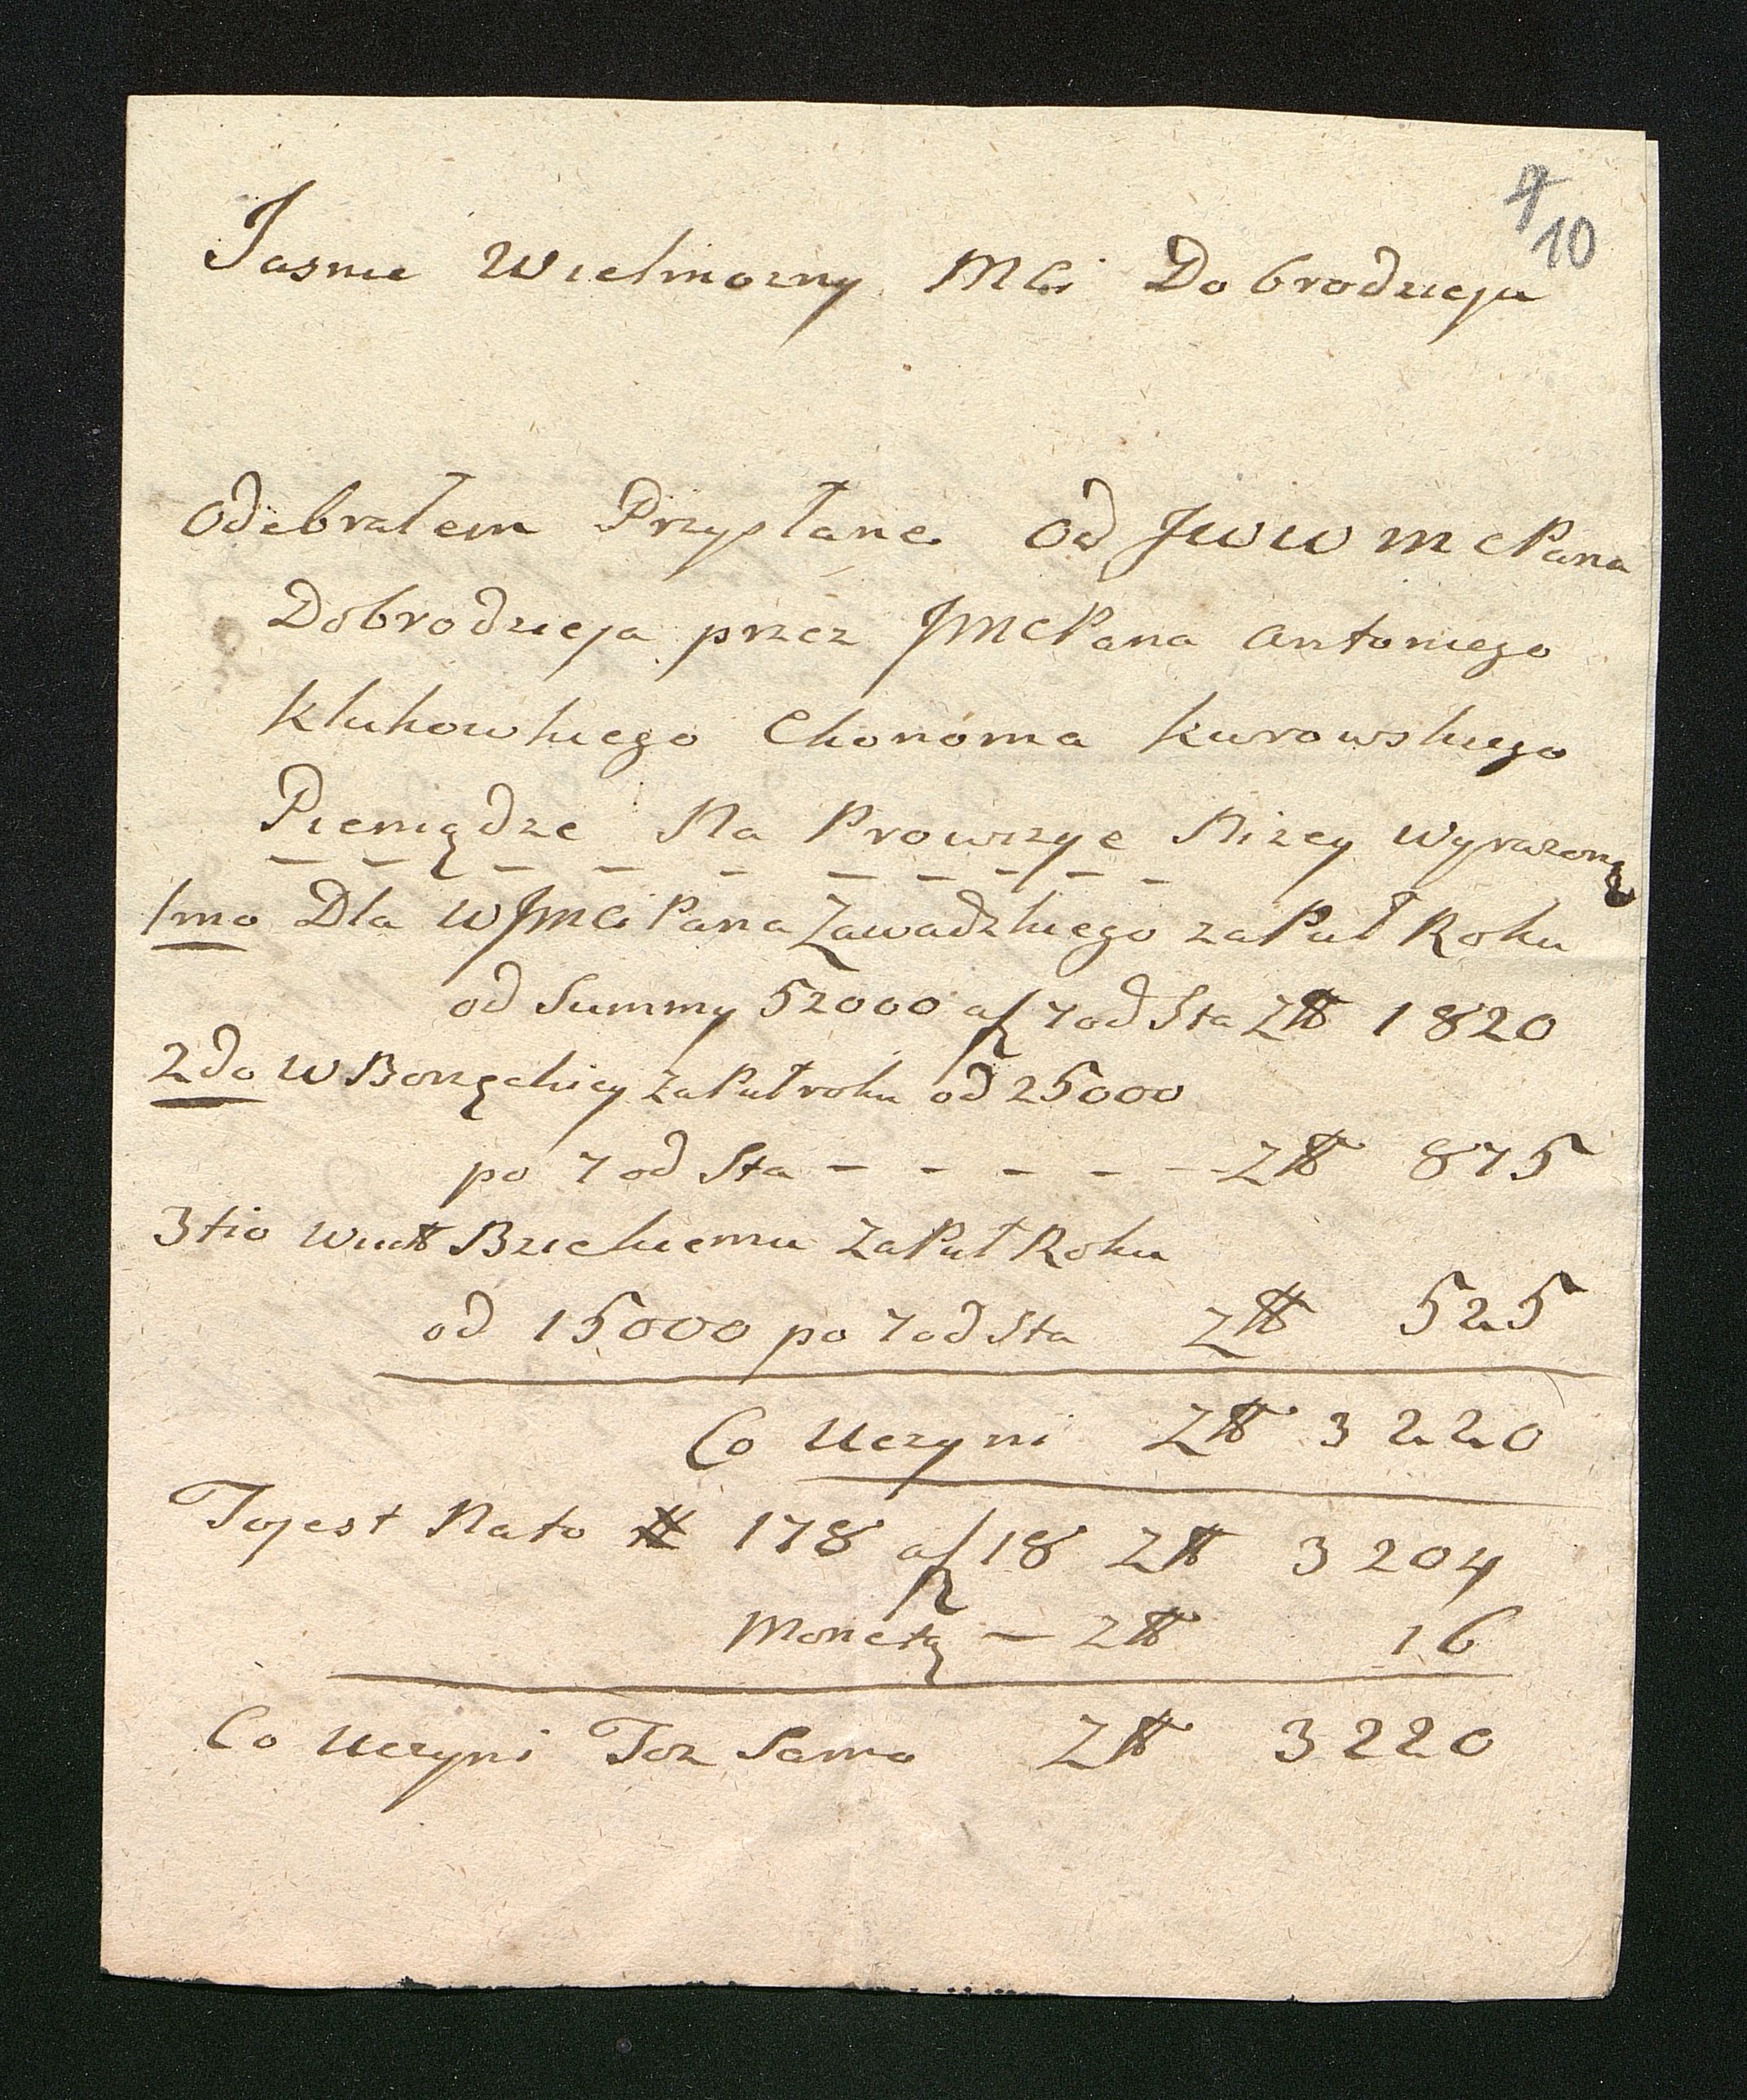 4/10
Jasnie Wielmozny MCi Dobrodzieju
Odebrałem Przysłane od JWW mcPana
Dobrodzieja przez JMCPana Antoniego
Klukowskiego Ekonoma Kurowskiego
Pieniądze Na Prowizyę Niżey Wyrażoną
1mo Dla WJMCi Pana Zawadzkiego za Puł Roku
od Summy 52000 a 7 od Sta Zł# 1820
2do W za Puł roku od 25000
po 7 od Sta - - - - - - Zł# 875
3tio za Puł Roku
od 15000 po 7 od Sta Zł# 525
Co Uczyni Zł# 3220
To jest Na to # 178 a 18 Zł# 3204
Monetą - Zł# 16
Co Uczyni Toż Samo Zł# 3220